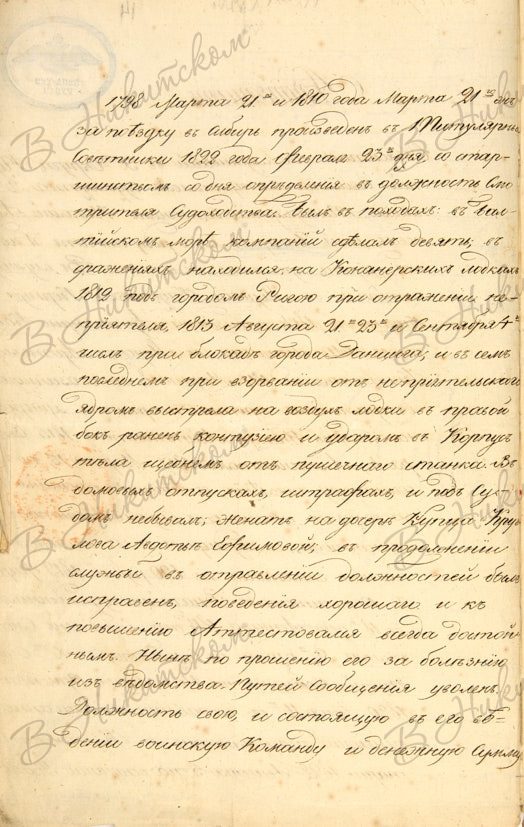 1798 Марта 21го и 1810 года Марта 21го дня,
за поездку въ Сибирь произведенъ въ Титулярные
Советники 1822 года Февраля 23го дня со стар-
шинствомъ со дня опредѣленія въ должность Смо-
трителя Судоходства. Былъ въ походахъ: въ Бал-
тійскомъ морѣ кампаній сдѣлалъ девять, въ
сраженіяхъ находился на Канонерскихъ лодкахъ
1812 подъ городомъ Ригою при отраженіи не-
пріятеля, 1813 Августа 21го 23го и Сентября 4го
числъ при блокадѣ города Данцига; и въ семъ
последнемъ при взорваніи отъ непріятельскаго
ядромъ выстрела на воздухъ лодки въ правой
бокъ раненъ контузіею и ударомъ въ Корпусъ
тѣла щебнемъ отъ пушечнаго станка. Въ
домовыхъ отпускахъ, штрафахъ, и подъ Су-
домъ небывалъ; женатъ на дочерѣ Купца
Авдотьѣ Ефимовой; въ продолженіи
службы въ отправленіи должностей былъ
исправенъ, поведенія хорошаго и къ
повышенію Аттестовался всегда достой-
нымъ. Нынѣ по прошенію его за болѣзнію
изъ вѣдомства Путей Сообщенія уволенъ.
Должность свою, и состоящую въ его вѣ-
деніи воинскую Команду и денежную Сумму
В Никитском
В Никитском
В Никитском
В Никитском
В Никитском
В Никитском